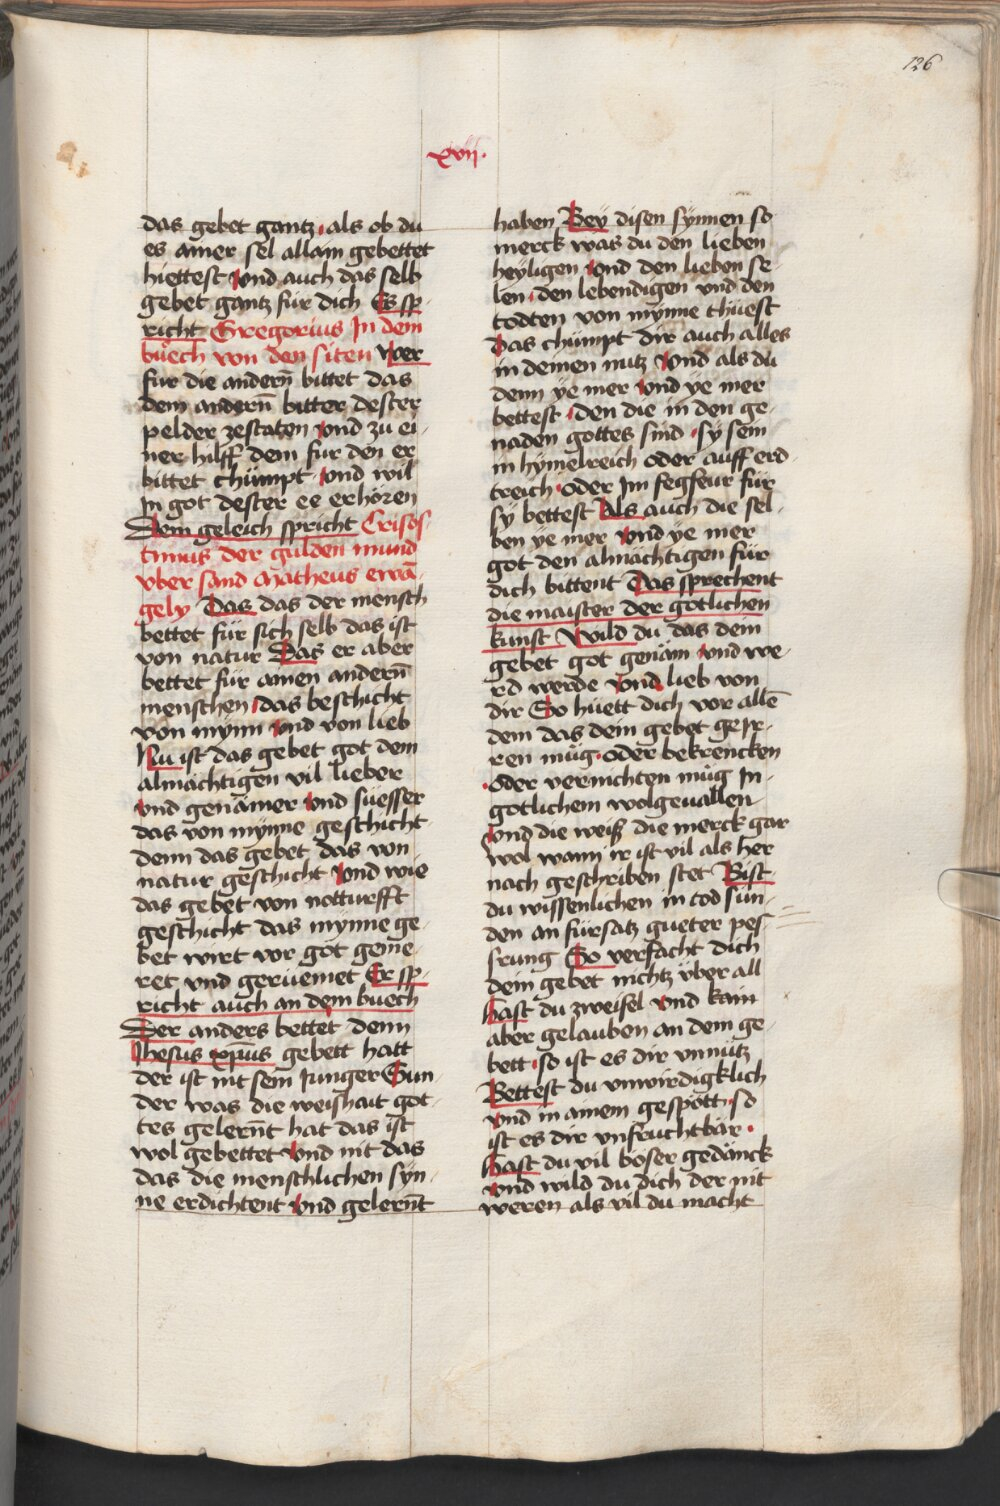 126
xvij.
das gebet gantz als ob du
es ainer sel allain gebettet
hiettest vnd auch das selb
gebet gantz für dich Es sp-
richt Gregorius In dem
buech von den siten Wer
für die andern̄ bittet das
dem andern̄ bitter dester
pelder zestaten vnd zu ei-
ner hilff dem für den er
bittet chümpt vnd wil
In got dester ee erhören
Dem geleich spricht Crisos-
timus der gulden mund
vber sand Matheus ewā-
gely Das das der mensch
bettet für sich selb das ist
von natur Das er aber
bettet für ainen andern̄
menschen das beschicht
von mynn vnd von lieb
Nu ist das gebet got dem
almächtigen vil lieber
vnd genämer vnd suesser
das von mynne geschicht
denn das gebet das von
natur geschicht vnd wie
das gebet von notturfft
geschicht das mynne ge-
bet wirt vor got geme-
ret vnd gerüemet Er sp-
richt auch an dem buech
Der anders bettet denn
Jhesus xp̄us gebett hatt
der ist nit sein Junger Sun-
der was die weishait got-
tes gelern̄t hat das ist
wol gebettet vnd nit das
das die menschlichen syn-
ne erdichtent vnd gelern̄t
haben Bey disen synnen so
merck was du den lieben
heyligen vnd den lieben se-
len den lebendigen vnd den
todten von mynne thüest
Das chümpt dir auch alles
in deinen nutz vnd als du
denn ye mer vnd ye mer
bettest den die in den ge-
naden gottes sind sy sein
in hymelreich oder auff erd
treich oder Im fegfeur für
sy bettest Als auch die sel-
ben ye mer vnd ye mer
got den almächtigen für
dich bittent Das sprechent
die maister der gotlichen
kunst Wild du das dein
gebet got genäm vnd we-
rd werde vnd lieb von
dir So huett dich vor allē
dem das dein gebet geir-
ren müg oder bekrencken
oder vernichten müg In
gotlichem wolgeuallen
Vnd die weiß die merck gar
wol wann ir ist vil als her
nach geschriben stet Bist
du wissenlichen in tod sün-
den an fürsatz gueter pes-
srung So verfacht dich
dein gebet nichtz über all
Hast du zweifel vnd kain
aber gelauben an dem ge-
bett so ist es dir vnnütz
Bettest du vnwirdigklich
vnd in ainem gespött so
ist es dir vnfruchtbär
Hast du vil böser gedänck
vnd wild du dich der nit
weren als vil du macht